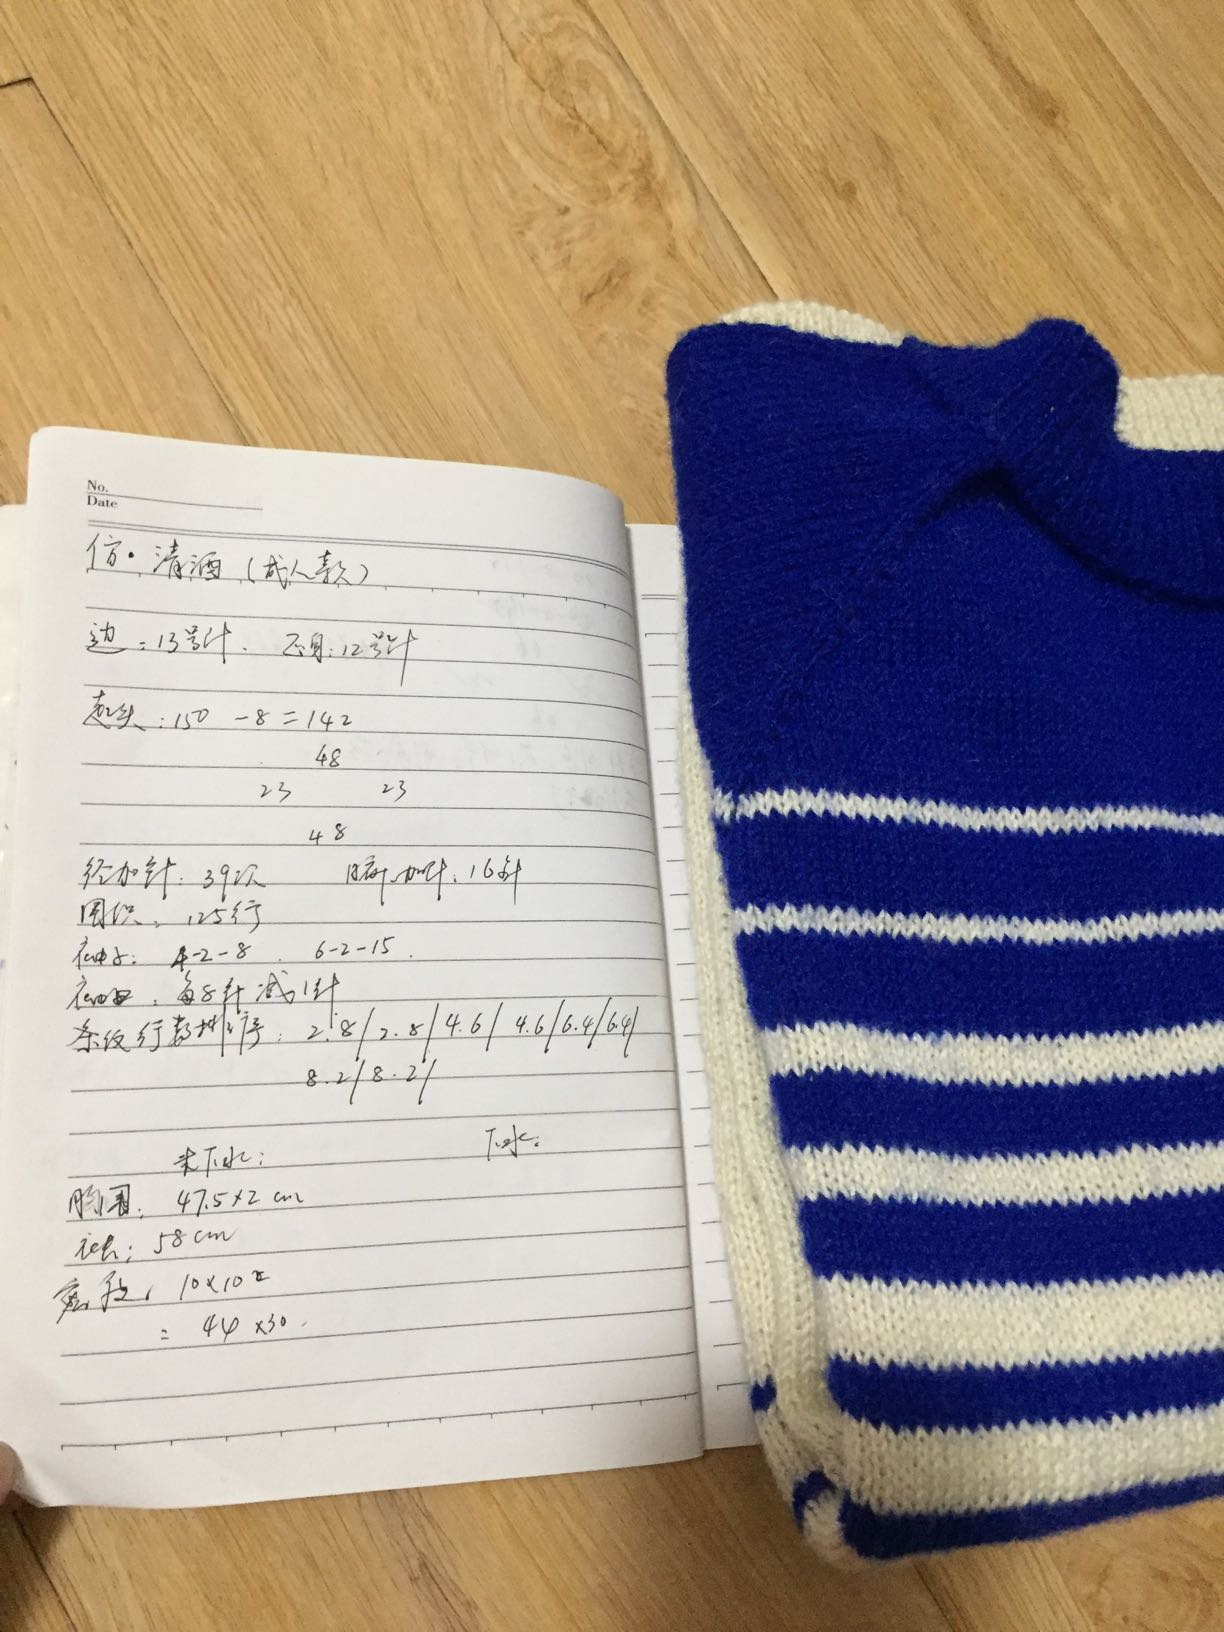 No.
Date
仿·清酒(成人款)
边:13号针. 正身:12号针
起头:150 -8=142
48
23 23
48
径加针:39次 腋加针:16针
圈织:125行
袖子: 4-2-8. 6-2-15.
袖口:每8针减1针
条纹行数排序: 2.8/2.8/4.6/4.6/6.4/6.4/
8.2/8.2/
未下水: 下水:
胸围: 47.5×2 cm
衣长: 58cm
密度: 10×10
= 44 ×30.